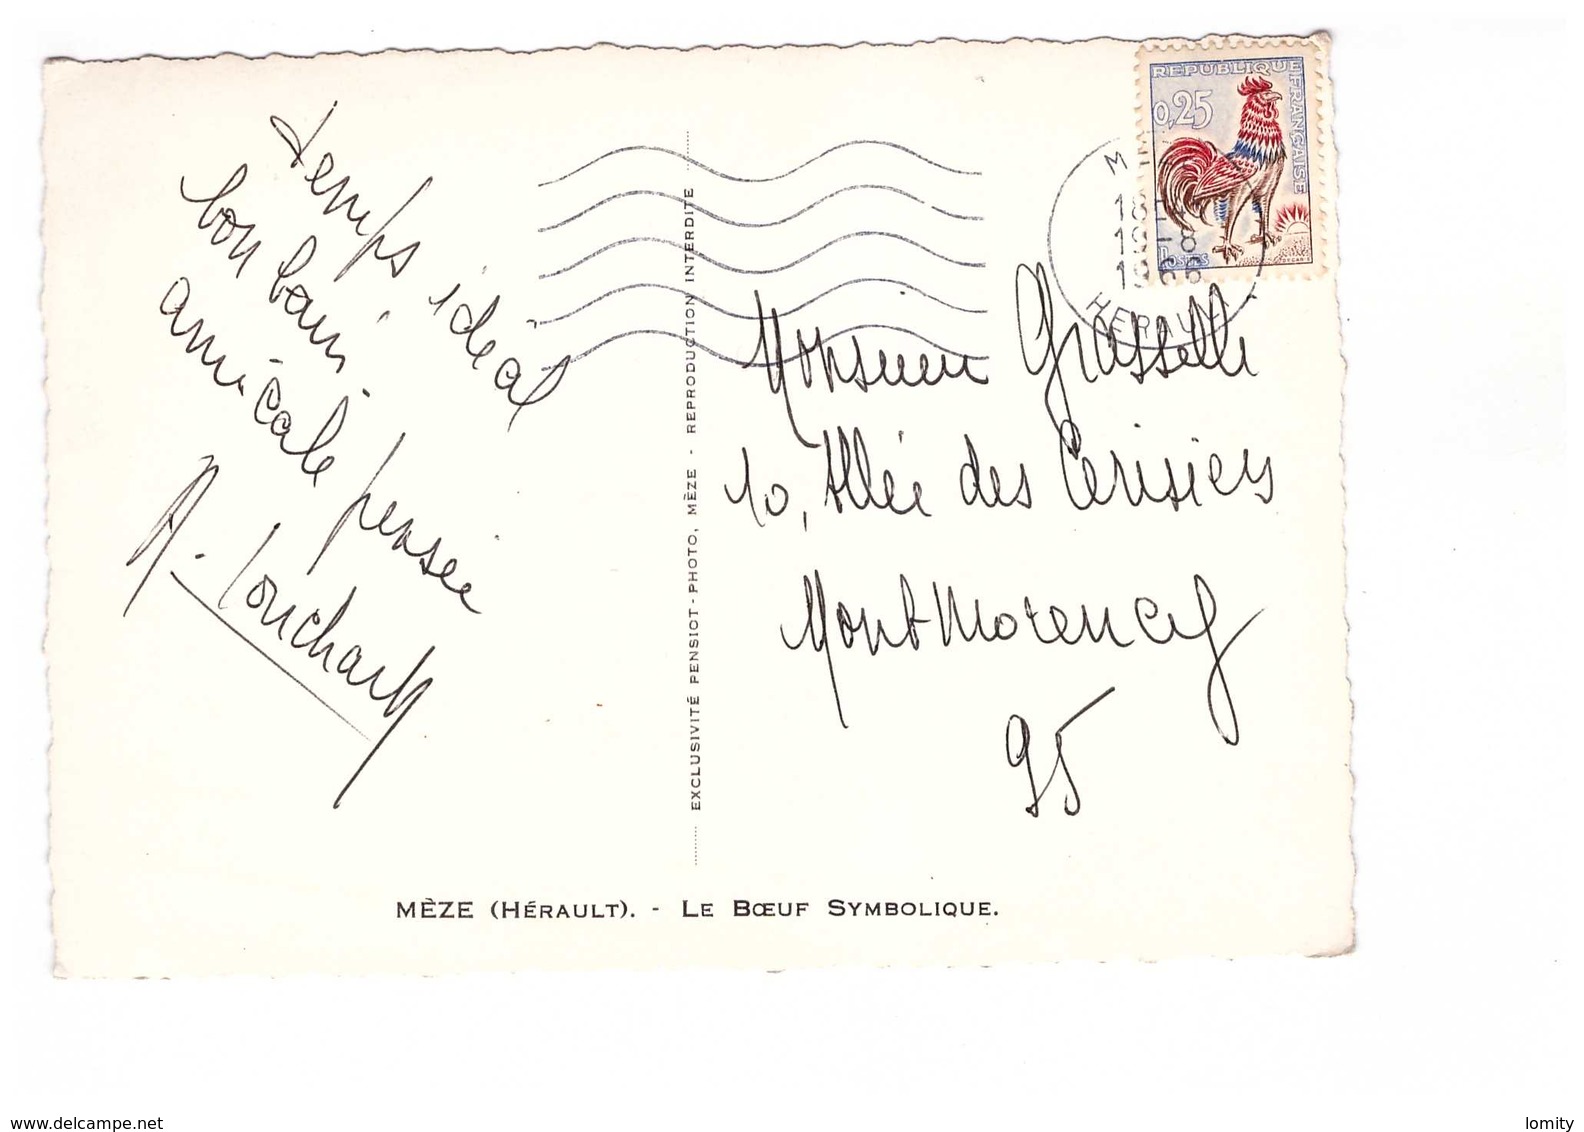 temps idéal
bon bain.
amicale pensée
REPUBLIQUE FRANÇAISE
0,25
POSTES
18
19-8
196
HERAULT
Monsieur Grasselli
10, Allée des Cerisiers
Montmorency
95
EXCLUSIVITÉ PENSIOT-PHOTO, MÈZE - REPRODUCTION INTERDITE
MÈZE (HÉRAULT). - LE BŒUF SYMBOLIQUE.
www.delcampe.net
lomity